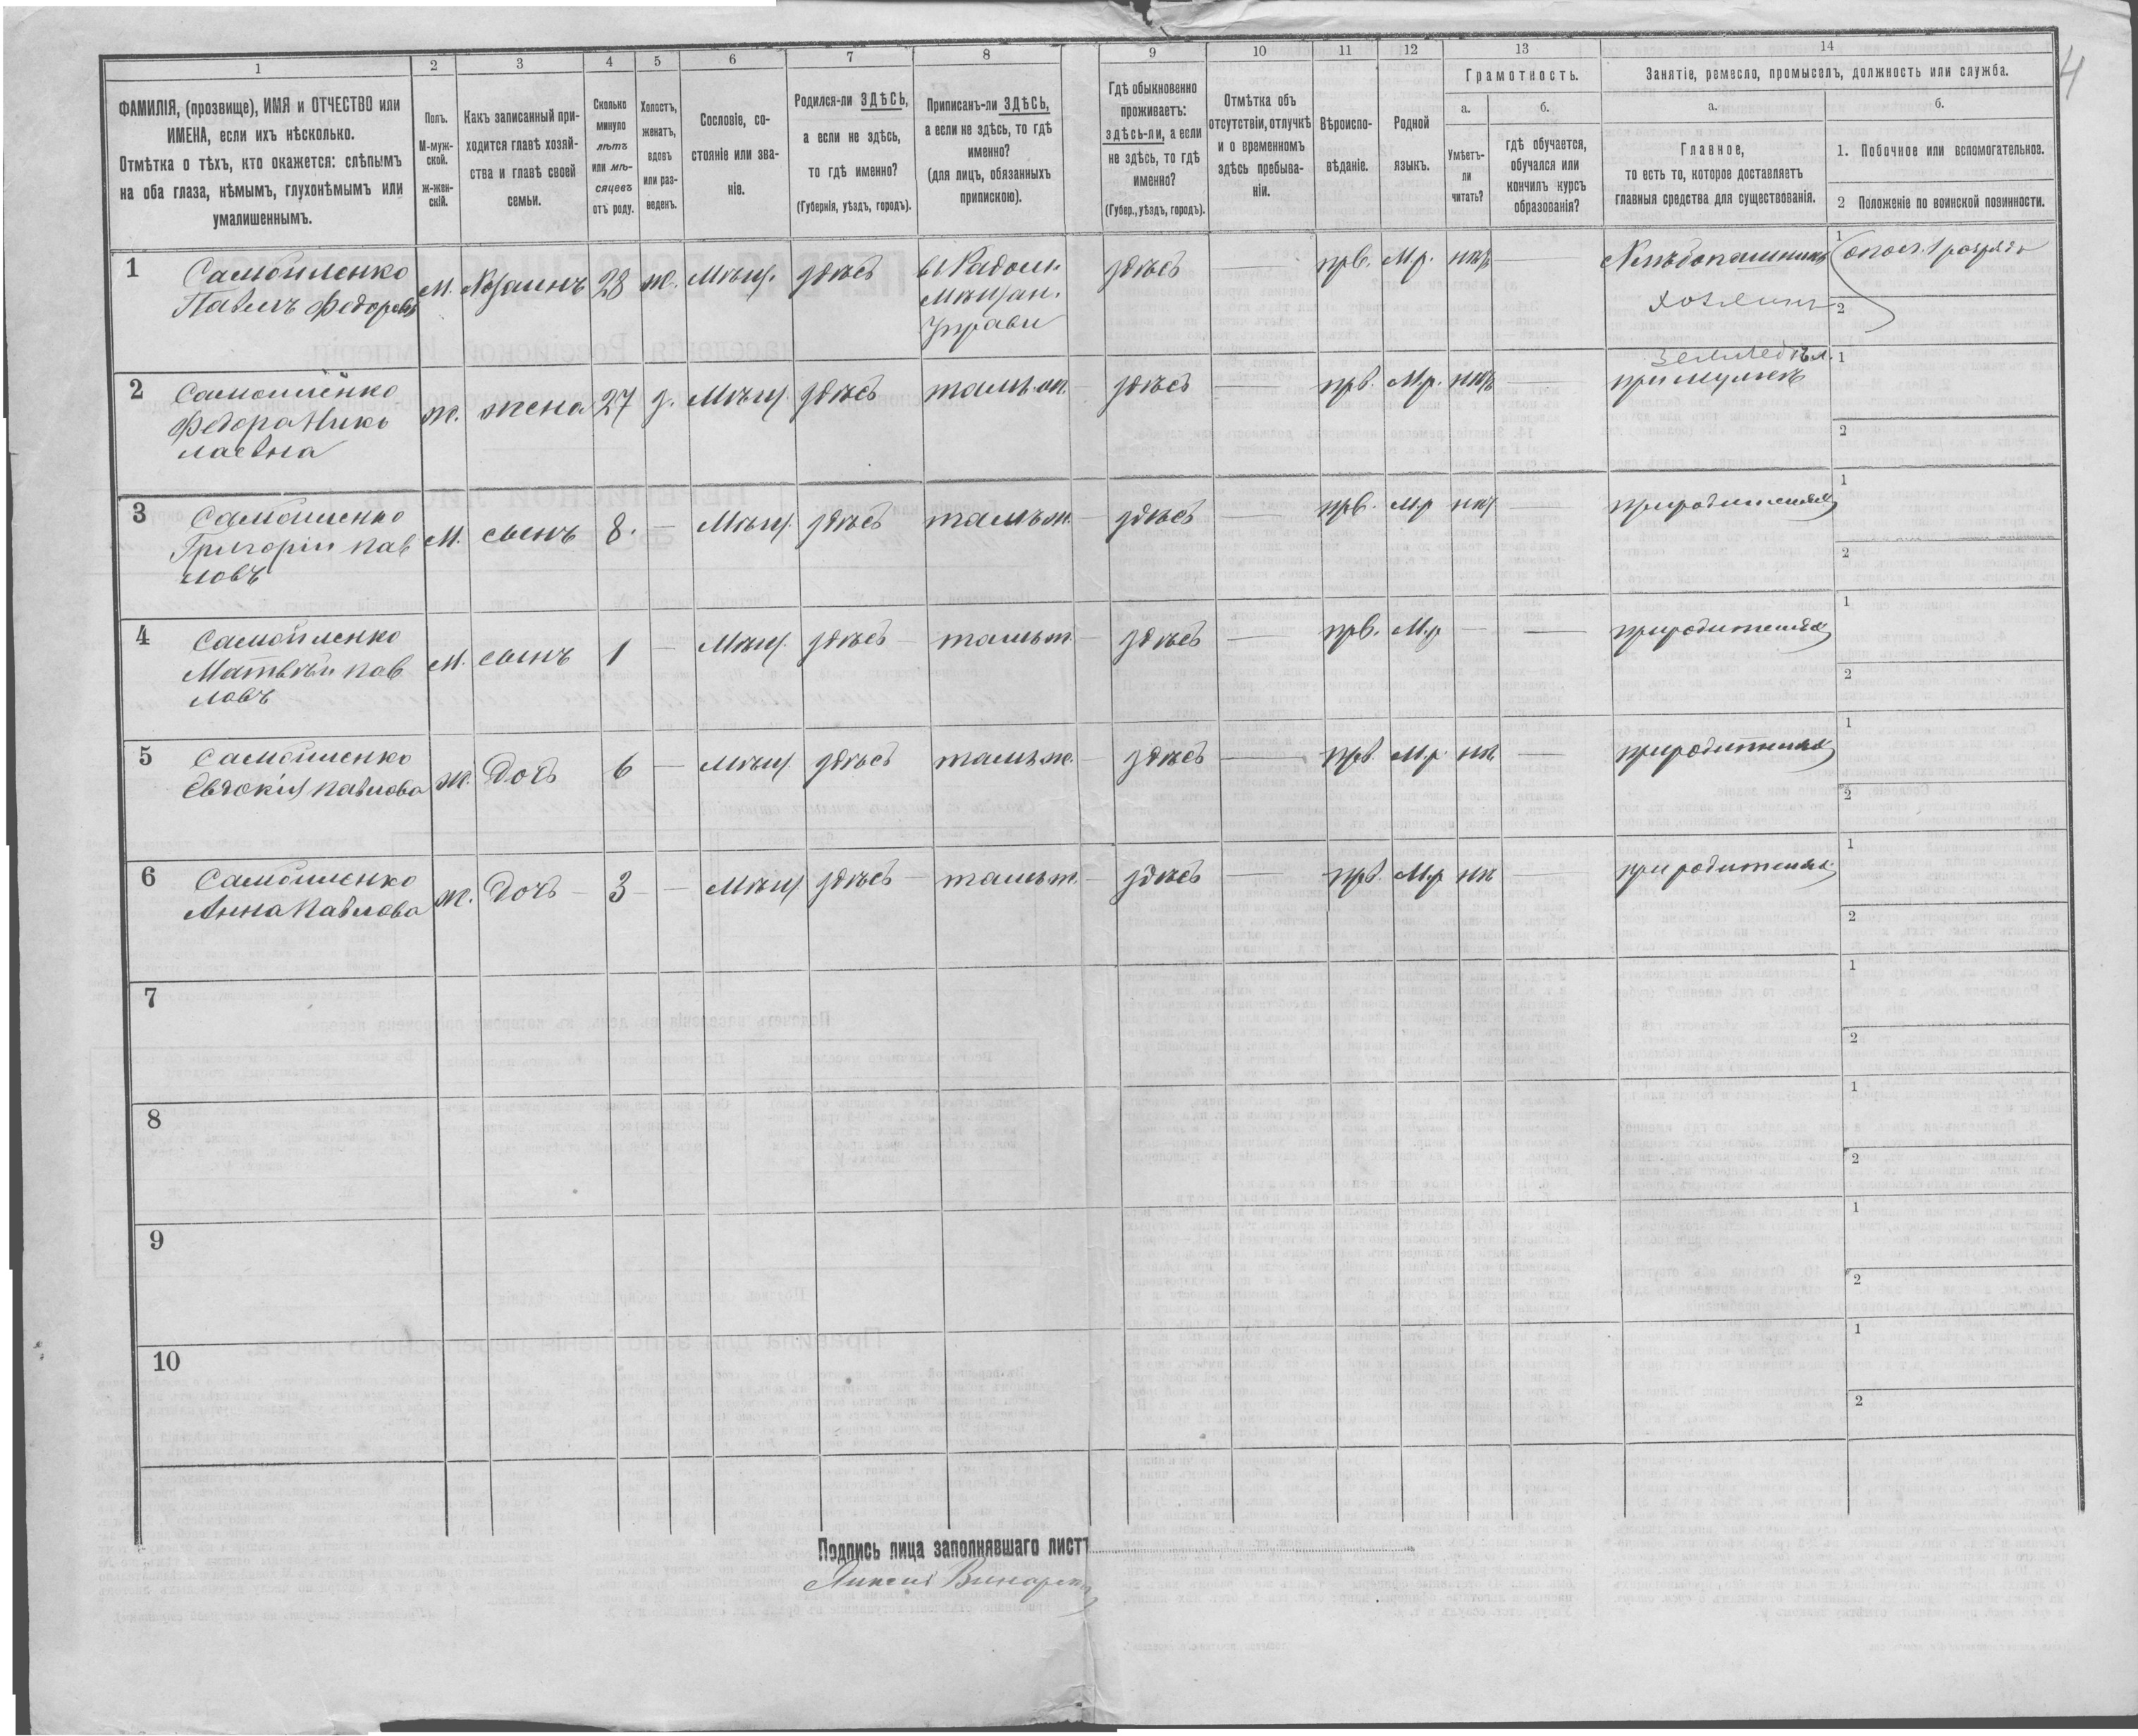 4
1 2 3 4 5 6 7 8 9 10 11 12 13 14
ФАМИЛІЯ, (прозвище), ИМЯ и ОТЧЕСТВО или
ИМЕНА, если ихъ нѣсколько.
Отмѣтка о тѣхъ, кто окажется: слѣпымъ
на оба глаза, нѣмымъ, глухонѣмымъ или
умалишеннымъ.
Полъ.
М-муж-
ской.
ж-жен-
скій.
Какъ записанный при-
ходится главѣ хозяй-
ства и главѣ своей
семьи.
Сколько
минуло
лѣтъ
или мѣ-
сяцевъ
отъ роду.
Холостъ,
женатъ,
вдовъ
или раз-
веденъ.
Сословіе, со-
стояніе или зва-
ніе.
Родился-ли ЗДѢСЬ,
а если не здѣсь,
то гдѣ именно?
(Губернія, уѣздъ, городъ).
Приписанъ-ли ЗДѢСЬ,
а если не здѣсь, то гдѣ
именно?
(для лицъ, обязанныхъ
припискою).
Гдѣ обыкновенно
проживаетъ:
здѣсь-ли, а если
не здѣсь, то гдѣ
именно?
(Губер., уѣздъ, городъ).
Отмѣтка объ
отсутствіи, отлучкѣ
и о временномъ
здѣсь пребыва-
ніи.
Вѣроиспо-
вѣданіе.
Родной
языкъ.
Грамотность.
а.
Умѣетъ-
ли
читать?
б.
гдѣ обучается,
обучался или
кончилъ курсъ
образованія?
Занятіе, ремесло, промыселъ, должность или служба.
а.
Главное,
то есть то, которое доставляетъ
главныя средства для существованія.
б.
1. Побочное или вспомогательное.
2 Положеніе по воинской повинности.
1 Самойленко М. Хозяинъ 28 ж. Мѣщ. здѣсь въ Радом. здѣсь — прв. М.р. — Хлѣбопашникъ 1 опол. 1 разряда
Павелъ Федоровъ Мѣщан. Хозяинъ 2
Управи
Земледѣл.
2 Самойленко ж. жена 27 з. Мѣщ. здѣсь тамъ-ж. здѣсь — прв. М.р. — при мужѣ 1
Федора Нико
лаевна 2
3 Самойленко М. сынъ 8. — Мѣщ. здѣсь тамъ ж. здѣсь — прв. М.р — при родителяхъ 1
Григорій Пав
ловъ 2
4 Самойленко М. сынъ 1 — Мѣщ. здѣсь — тамъ ж. — здѣсь — прв. М.р — — при родителяхъ 1
Матвѣй Пав
ловъ 2
5 Самойленко ж. Дочь 6 — Мѣщ. здѣсь тамъ ж. здѣсь — прв. М.р. нѣ. — при родителяхъ 1
Евдокія Павлова 2
6 Самойленко ж. Дочь — 3 — Мѣщ здѣсь — тамъ ж. — здѣсь — прв. М.р нѣ — при родителяхъ 1
Анна Павлова 2
7 1
2
8 1
2
9 1
2
10 1
2
Подпись лица заполнявшаго листъ